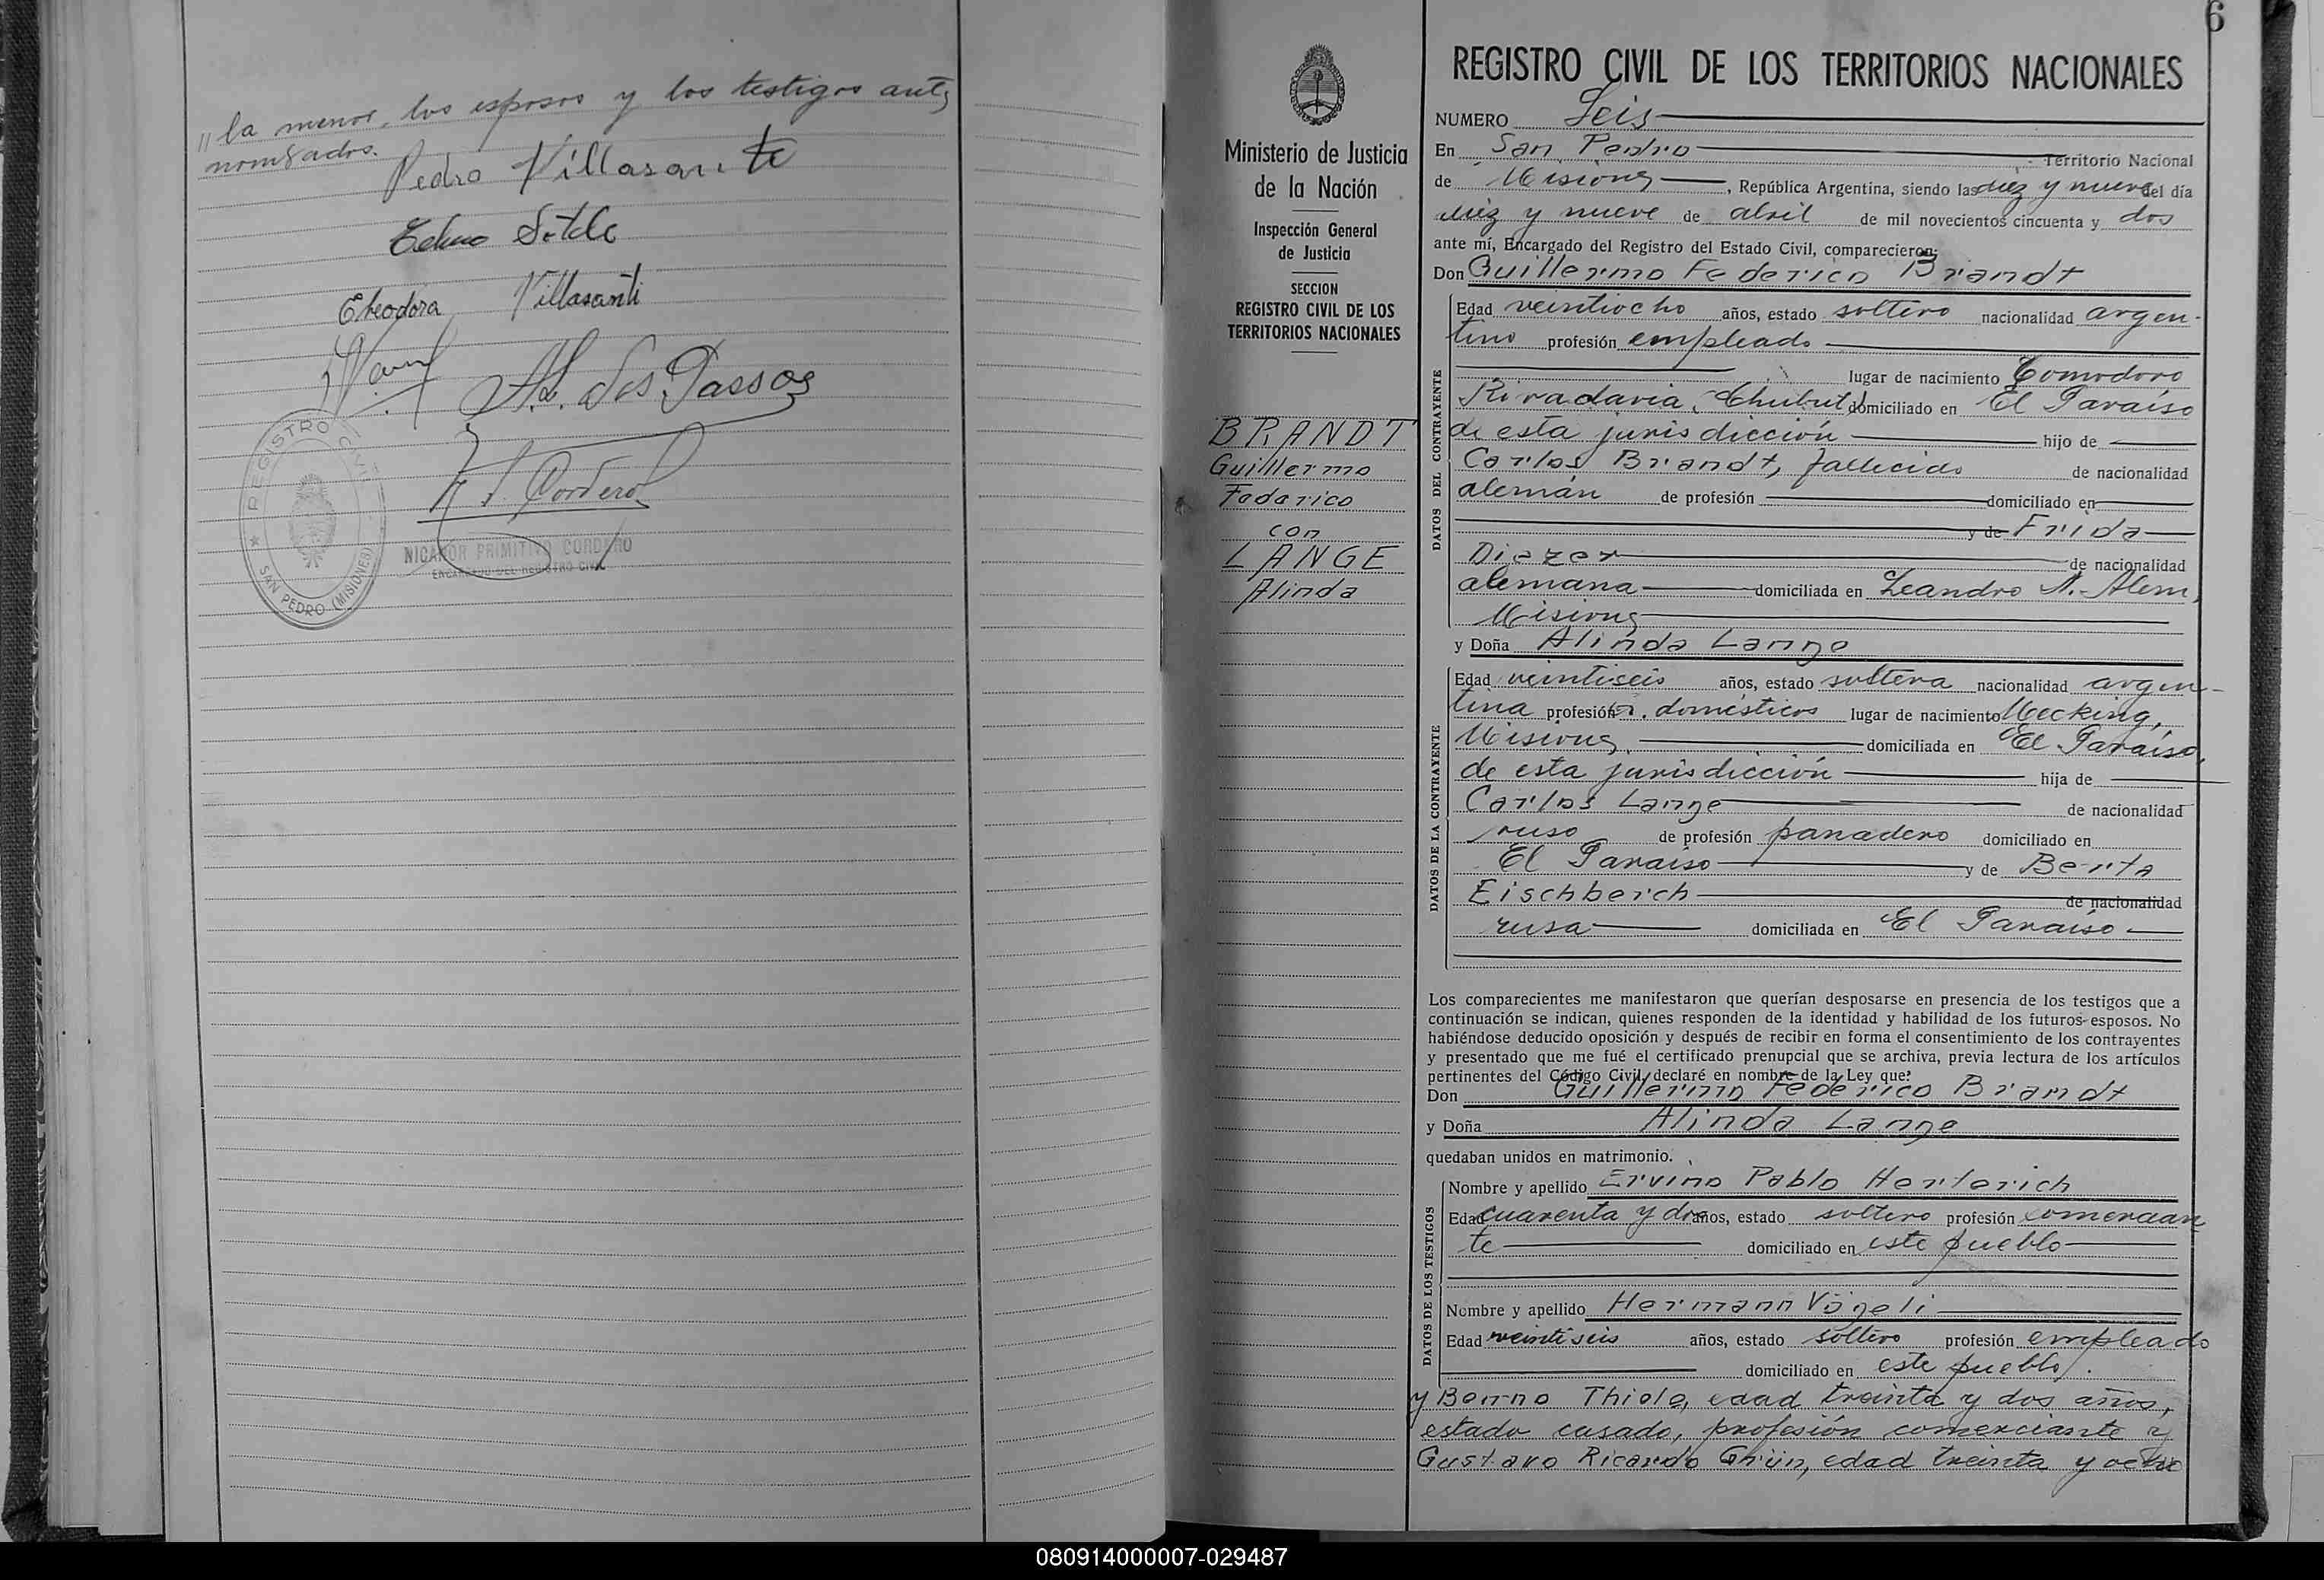 " la menor, los esposos y los testigos antes
nombrados.
Pedro Villasante
Telmo Sotelo
Eheodora Villasanti
A. L. dos Passos
N. P. Cordero
REGISTRO CIVIL
★ SAN PEDRO (MISIONES)
NICANOR PRIMITIVO CORDERO
ENCARGADO DEL REGISTRO CIVIL
6
Ministerio de Justicia
de la Nación
Inspección General
de Justicia
SECCION
REGISTRO CIVIL DE LOS
TERRITORIOS NACIONALES
BRANDT
Guillermo
Federico
con
LANGE
Alinda
REGISTRO CIVIL DE LOS TERRITORIOS NACIONALES
NUMERO Seis
En San Pedro Territorio Nacional
de Misiones, República Argentina, siendo las diez y nueve del día
diez y nueve de abril de mil novecientos cincuenta y dos
ante mí, Encargado del Registro del Estado Civil, comparecieron:
Don Guillermo Federico Brandt
DATOS DEL CONTRAYENTE
Edad veintiocho años, estado soltero nacionalidad argen-
tino profesión empleado
lugar de nacimiento Comodoro
Rivadavia, Chubut domiciliado en El Paraíso
de esta jurisdicción hijo de
Carlos Brandt, fallecido de nacionalidad
alemán de profesión domiciliado en
y de Frida
Diezer de nacionalidad
alemana domiciliada en Leandro N. Alem,
Misiones
y Doña Alinda Lange
DATOS DE LA CONTRAYENTE
Edad veintiseis años, estado soltera nacionalidad argen-
tina profesión q. domésticos lugar de nacimiento Mecking,
Misiones, domiciliada en El Paraíso,
de esta jurisdicción hija de
Carlos Lange de nacionalidad
ruso de profesión panadero domiciliado en
El Paraíso y de Berta
Eischberch de nacionalidad
rusa domiciliada en El Paraíso
Los comparecientes me manifestaron que querían desposarse en presencia de los testigos que a
continuación se indican, quienes responden de la identidad y habilidad de los futuros esposos. No
habiéndose deducido oposición y después de recibir en forma el consentimiento de los contrayentes
y presentado que me fué el certificado prenupcial que se archiva, previa lectura de los artículos
pertinentes del Código Civil, declaré en nombre de la Ley que:
Don Guillermo Federico Brandt
y Doña Alinda Lange
quedaban unidos en matrimonio.
DATOS DE LOS TESTIGOS
Nombre y apellido Ervino Pablo Herterich
Edad cuarenta y dos años, estado soltero profesión comercian
te domiciliado en este pueblo
Nombre y apellido Hermann Vögeli
Edad veintiseis años, estado soltero profesión empleado
domiciliado en este pueblo.
y Benno Thiele, edad treinta y dos años,
estado casado, profesión comerciante y
Gustavo Ricardo Grün, edad treinta y ocho
080914000007-029487